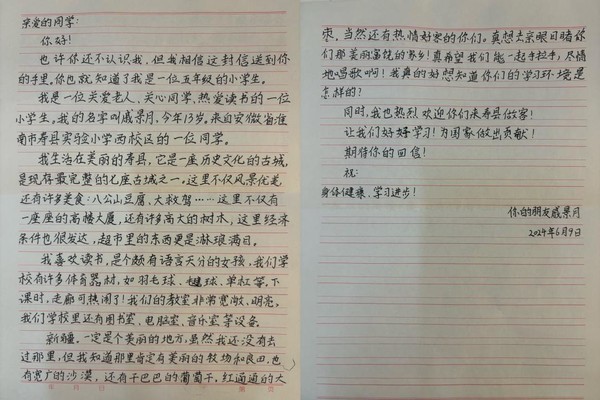 亲爱的同学：
你好！
也许你还不认识我，但我相信这封信送到你
的手里。你也就知道了我是一位五年级的小学生。
我是一位关爱老人、关心同学，热爱读书的一位
小学生。我的名字叫戚景月，今年13岁。来自安徽省淮
南市寿县实验小学西校区的一位同学。
我生活在美丽的寿县，它是一座历史文化的古城，
是现存最完整的七座古城之一。这里不仅风景优美，
还有许多美食：八公山豆腐、大救驾……这里不仅有
一座座的高楼大厦，还有许多高大的树木，这里经济
条件也很发达，超市里的东西更是淋琅满目。
我喜欢读书，是个颇有语言天分的女孩，我们学
校有许多体育器材，如羽毛球、球、单杠等。下
课时，走廊可热闹了！我们的教室非常宽敞、明亮，
我们学校里还有图书室、电脑室、音乐室等设备。
新疆，一定是个美丽的地方，虽然我还没有去
过那里，但我知道那里肯定有美丽的牧场和良田，也
有宽广的沙漠，还有干巴巴的葡萄干，红通通的大
枣，当然还有热情好客的你们。真想去亲眼目睹你
们那美丽富饶的家乡！真希望我们能一起手拉手，尽情
地唱歌啊！我真的好想知道你们的学习环境是
怎样的？
同时，我也热烈欢迎你们来寿县做客！
让我们好好学习！为国家做出贡献！
期待你的回信！
祝：
身体健康、学习进步！
你的朋友戚景月
2024年6月9日